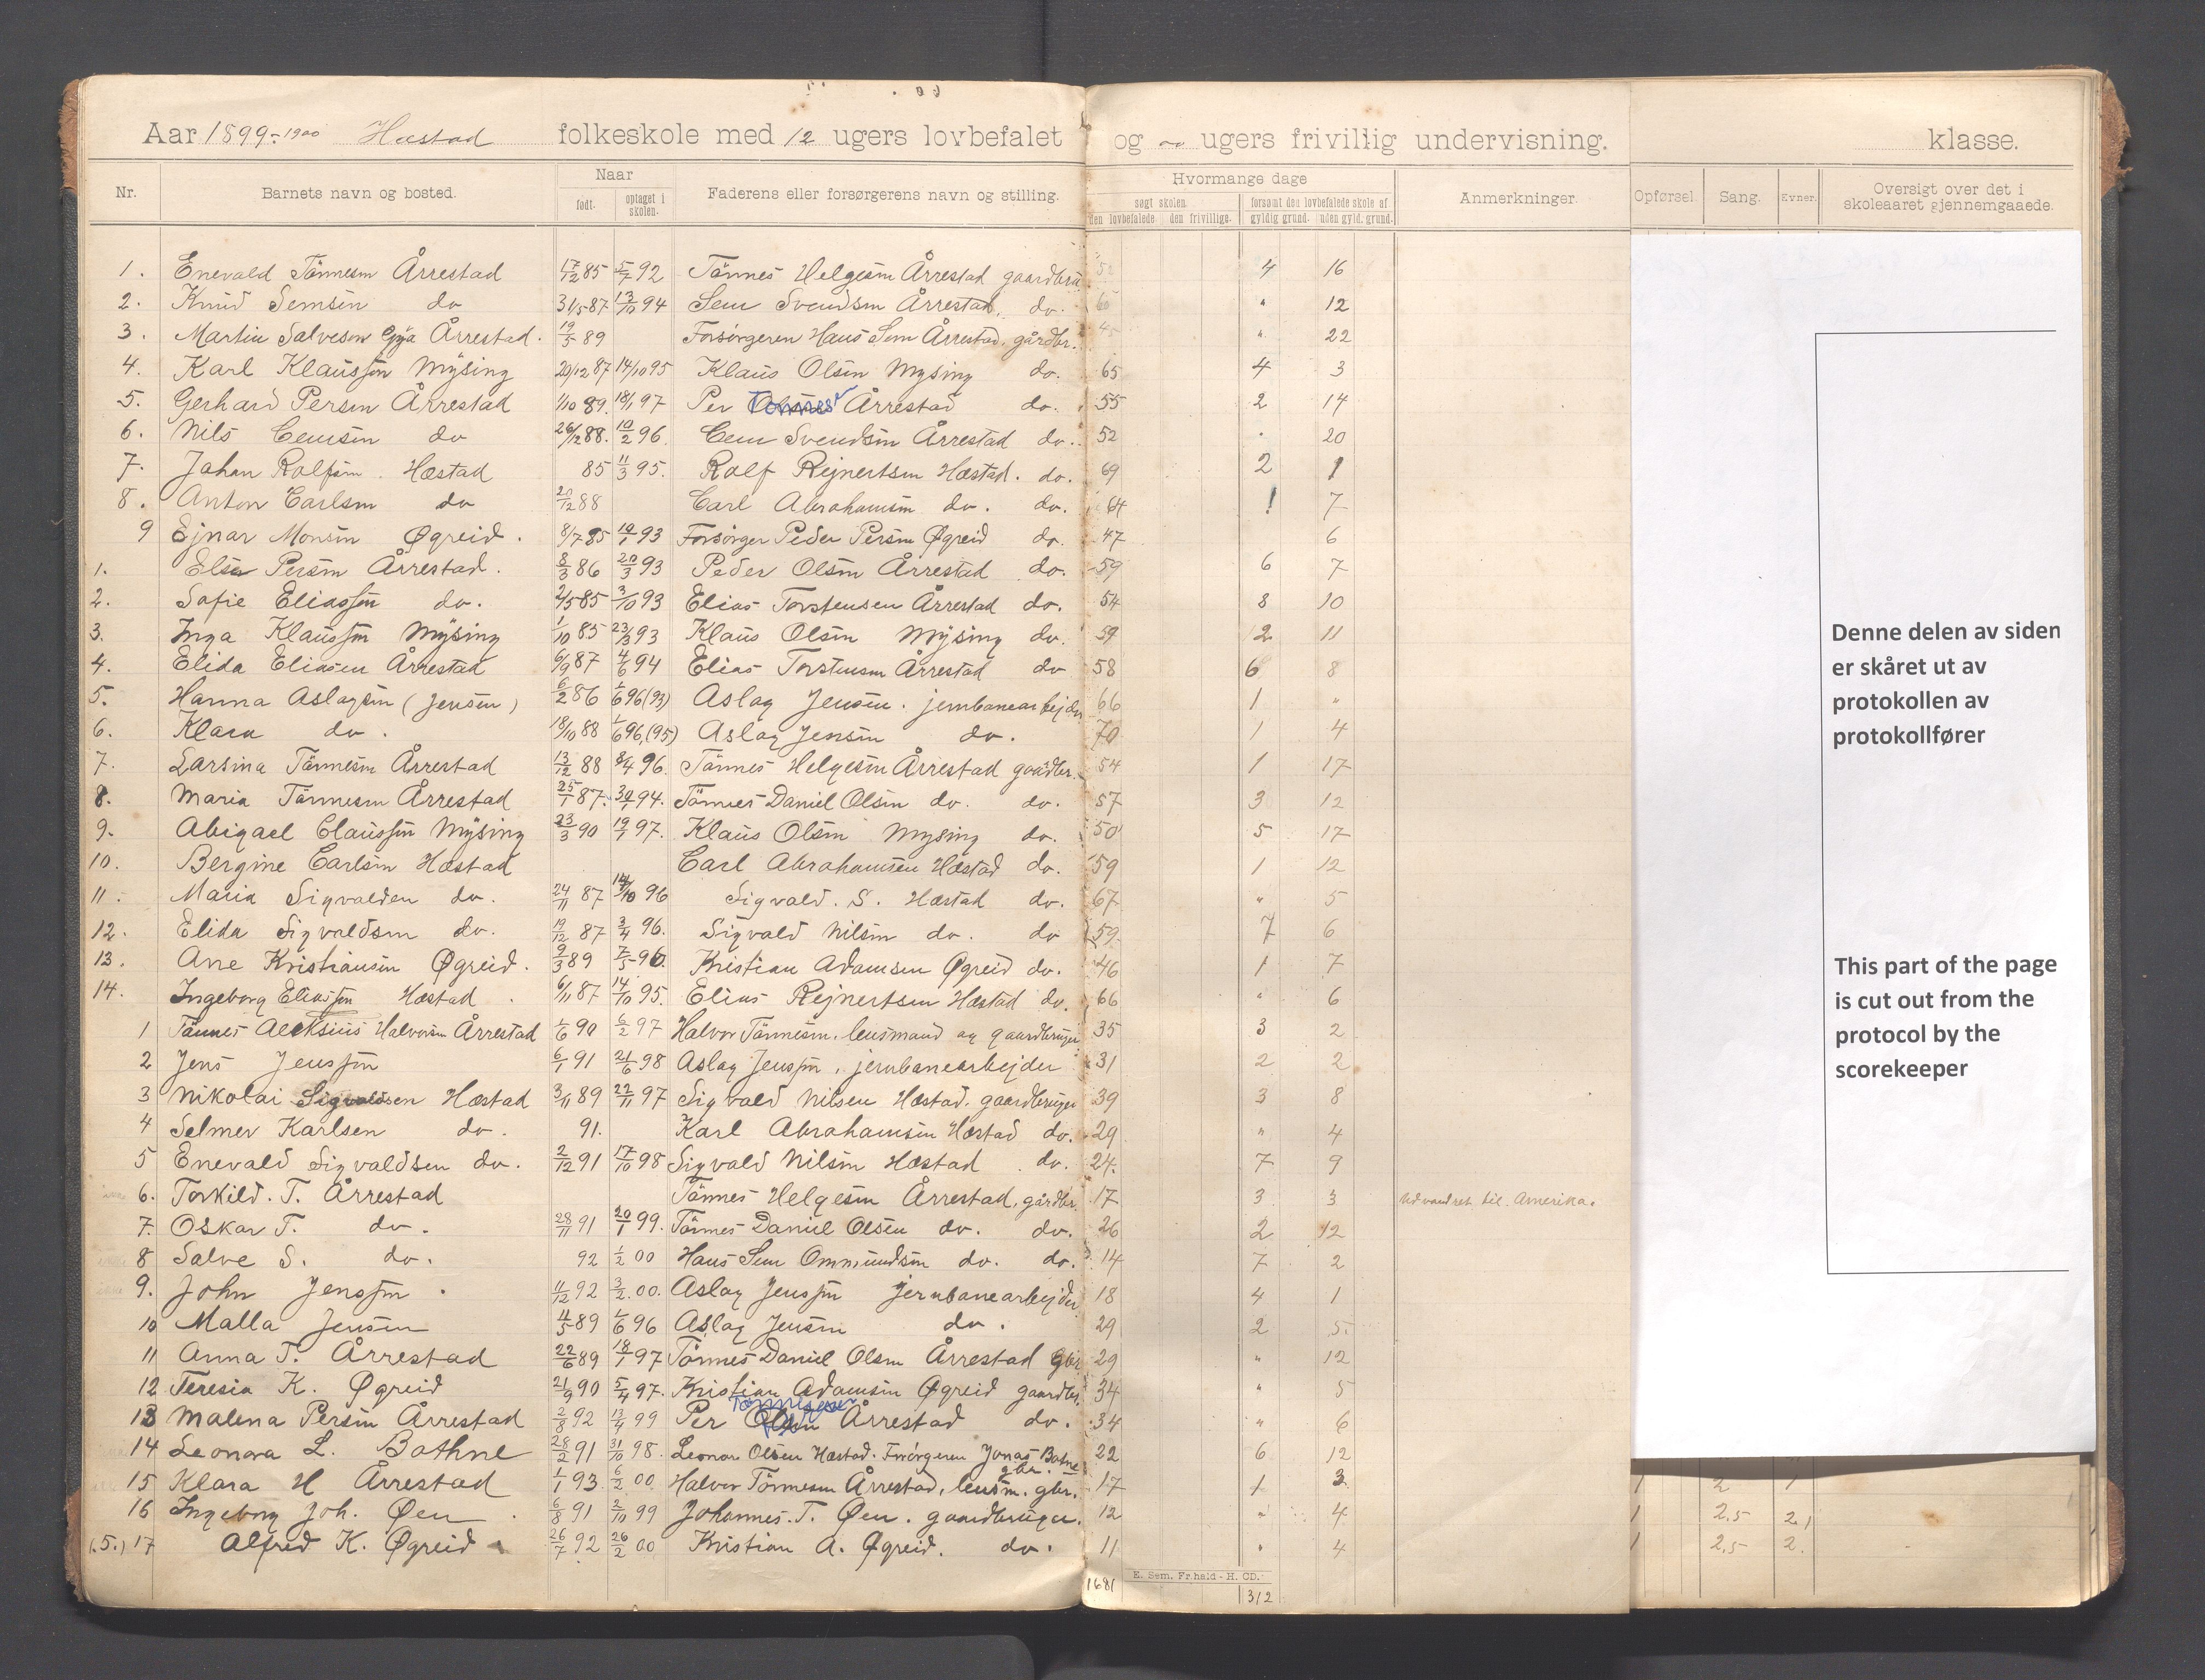 Aar 1899-1900 Hæstad folkeskole med 12 ugers lovbefalet og " ugers frivillig undervisning. klasse.
Nr. Barnets navn og bosted. Naar født. optaget i skolen. Faderens eller forsørgerens navn og stilling. Hvormange dage søgt skolen. den lovbefalede. den frivillige. forsømt den lovbefalede skole af gyldig grund. uden gyld. grund. Anmerkninger. Opførsel. Sang. Evner. Oversigt over det i skoleaaret gjennemgaaede.
1. Enevald Tönnesen Årrestad 17/12 85 5/7 92 Tönnes Helgesen Årrestad gaardbru 4 16
2. Knud Semsen do 31/5 87 13/10 94 Sem Svendsen Årrestad, do. " 12
3. Martin Salvesen Gya Årrestad. 19/5 89 Forsörgeren Hans Sem Årrestad. gårdbr. " 22
4. Karl Klaussen Mysing 20/12 87 14/10 95 Klaus Olsen Mysing do. 65 4 3
5. Gerhard Persen Årrestad 1/10 89. 18/1 97 Per Tonnes Årrestad do. 55 2 14
6. Nils Cemsen do 26/12 88. 10/2 96. Cem Svendsen Årrestad do. 52 20
7. Johan Rolfsen. Hæstad 85 11/3 95. Rolf Rejnertsen Hæstad. do. 69 2 1
8. Anton Carlsen do 20/12 88 Carl Abrahamsen do. do. 64 1 7
9 Ejnar Monsen Øgreid. 8/7 85 19/1 93 Forsörger Peder Persen Øgreid do. 47 6
1. Elsa Persen Årrestad. 8/3 86 20/3 93 Peder Olsen Årrestad do. 59 6 7
2. Sofie Eliassen do. 2/5 85 3/10 93 Elias Torstensen Årrestad do. 54 8 10
3. Inga Klaussen Mysing 1/10 85 23/3 93 Klaus Olsen Mysing do. 59 2 11
4. Elida Eliasen Årrestad 6/9 87 4/6 94 Elias Torstensen Årrestad do 58 6 8
5. Hanna Aslagsen (Jensen) 6/2 86 1/6 96 (93) Aslag Jensen. jernbanearbejder 66 1 "
6. Klara do. 18/10 88 1/6 96, (95) Aslag Jensen do. 70 1 4
7. Larsina Tönnesen Årrestad 13/12 88 8/4 96. Tönnes Helgesen Årrestad gaardbr. 54 1 17
8. Maria Tönnesen Årrestad 25/1 87. 30/1 94. Tönnes Daniel Olsen do. do. 57 3 12
9. Abigael Claussen Mysing 23/3 90 19/1 97. Klaus Olsen Mysing do. 50 5 17
10. Bergine Carlsen Hæstad Carl Abrahamsen Hæstad do. 59 1 12
11. Maria Sigvalden do. 24/11 87 96 Sigvald. S. Hæstad do. 67 " 5
12. Elida Sigvaldsen do. 19/12 87 3/4 96. Sigvald Nilsen do. do 59 7 6
13. Ane Kristiansen Øgreid. 9/3 89 7/5 96. Kristian Adamsen Øgreid do. 46 1 7
14. Ingeborg Eliassen Hæstad 6/11 87 14/10 95. Elias Rejnertsen Hæstad do. 66 " 6
1 Tönnes Aleksius Halvorsen Årrestad 1/6 90 6/2 97 Halvor Tönnesen. lensmand og gaardbruger 35 3 2
2 Jens Jenssen 6/1 91 21/6 98 Aslag Jenssen, jernbanearbejder 31 2 2
3 Nikolai Sigvaldsen Hæstad 3/11 89 22/11 97 Sigvald Nilsen Hæstad. gaardbruger 39 3 8
4 Selmer Karlsen do. 91. Karl Abrahamsen Hæstad do. 29 " 4
5 Enevald Sigvaldsen do. 2/12 91 17/10 98 Sigvald Nilsen Hæstad. do. 24. 7 9
6. Torkild. T. Årrestad Tönnes Helgesen Årrestad, gårdbr. 17 3 3 Udvandret til Amerika.
7. Oskar T. do. 28/11 91 20/1 99. Tönnes Daniel Olsen do. do. 26 2 12
8 Salve S. do. 92 1/2 00 Hans Sem Ommundsen do. do. 14 7 2
9. John Jenssen. 11/12 92 3/2 00. Aslag Jenssen Jernbanearbejder 18 4 1
10 Malla Jensen 4/5 89 1/6 96 Aslag Jensen do. 29 2 5.
11 Anna T. Årrestad 22/6 89 18/1 97 Tönnes Daniel Olsen Årrestad gbr 29 " 12
12 Teresia K. Øgreid 21/9 90 5/4 97. Kristian Adamsen Øgreid gaardbr. 34 " 5
13 Malena Persen Årrestad 2/8 92 13/4 99 Per Olsen Tönnessen Årrestad do. 34 " 6
14 Leonora L. Bathne 28/2 91 31/10 98. Leonar Olsen Hæstad. Forsörgeren Jonas Batne gbr. 22 6 12
15 Klara H Årrestad 1/1 93 6/2 00 Halvor Tönnesen Årrestad, lensm. gbr. 17 1 3 1 2 1
16 Ingeborg Joh. Øen 6/8 91 2/10 99 Johannes. T. Øen. gaardbruger. 12 " 4 1 2.5 2,1
(.5.) 17 Alfred K. Øgreid 26/7 92 26/2 00 Kristian A. Øgreid. do. 11 " 4 1 2.5 2.
1681 E. Sem. Fr.hald - H. CD. 312
Denne delen av siden
er skåret ut av
protokollen av
protokollfører
This part of the page
is cut out from the
protocol by the
scorekeeper